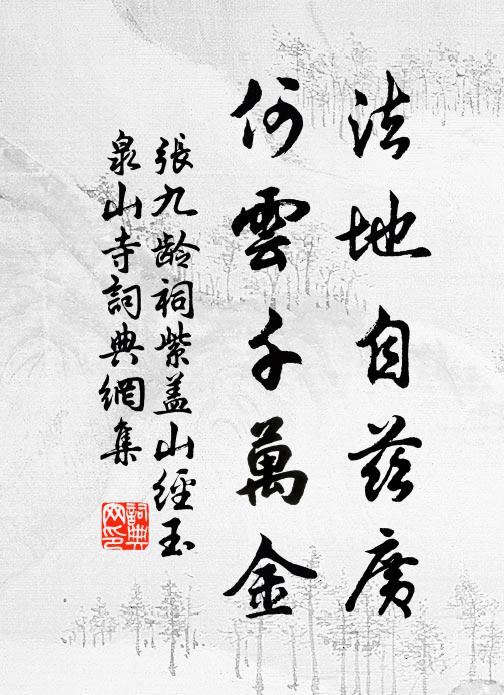 法地自茲廣
何雲千萬金
張九龄祠紫盖山經玉
泉山寺詞典網集
詞典
网印